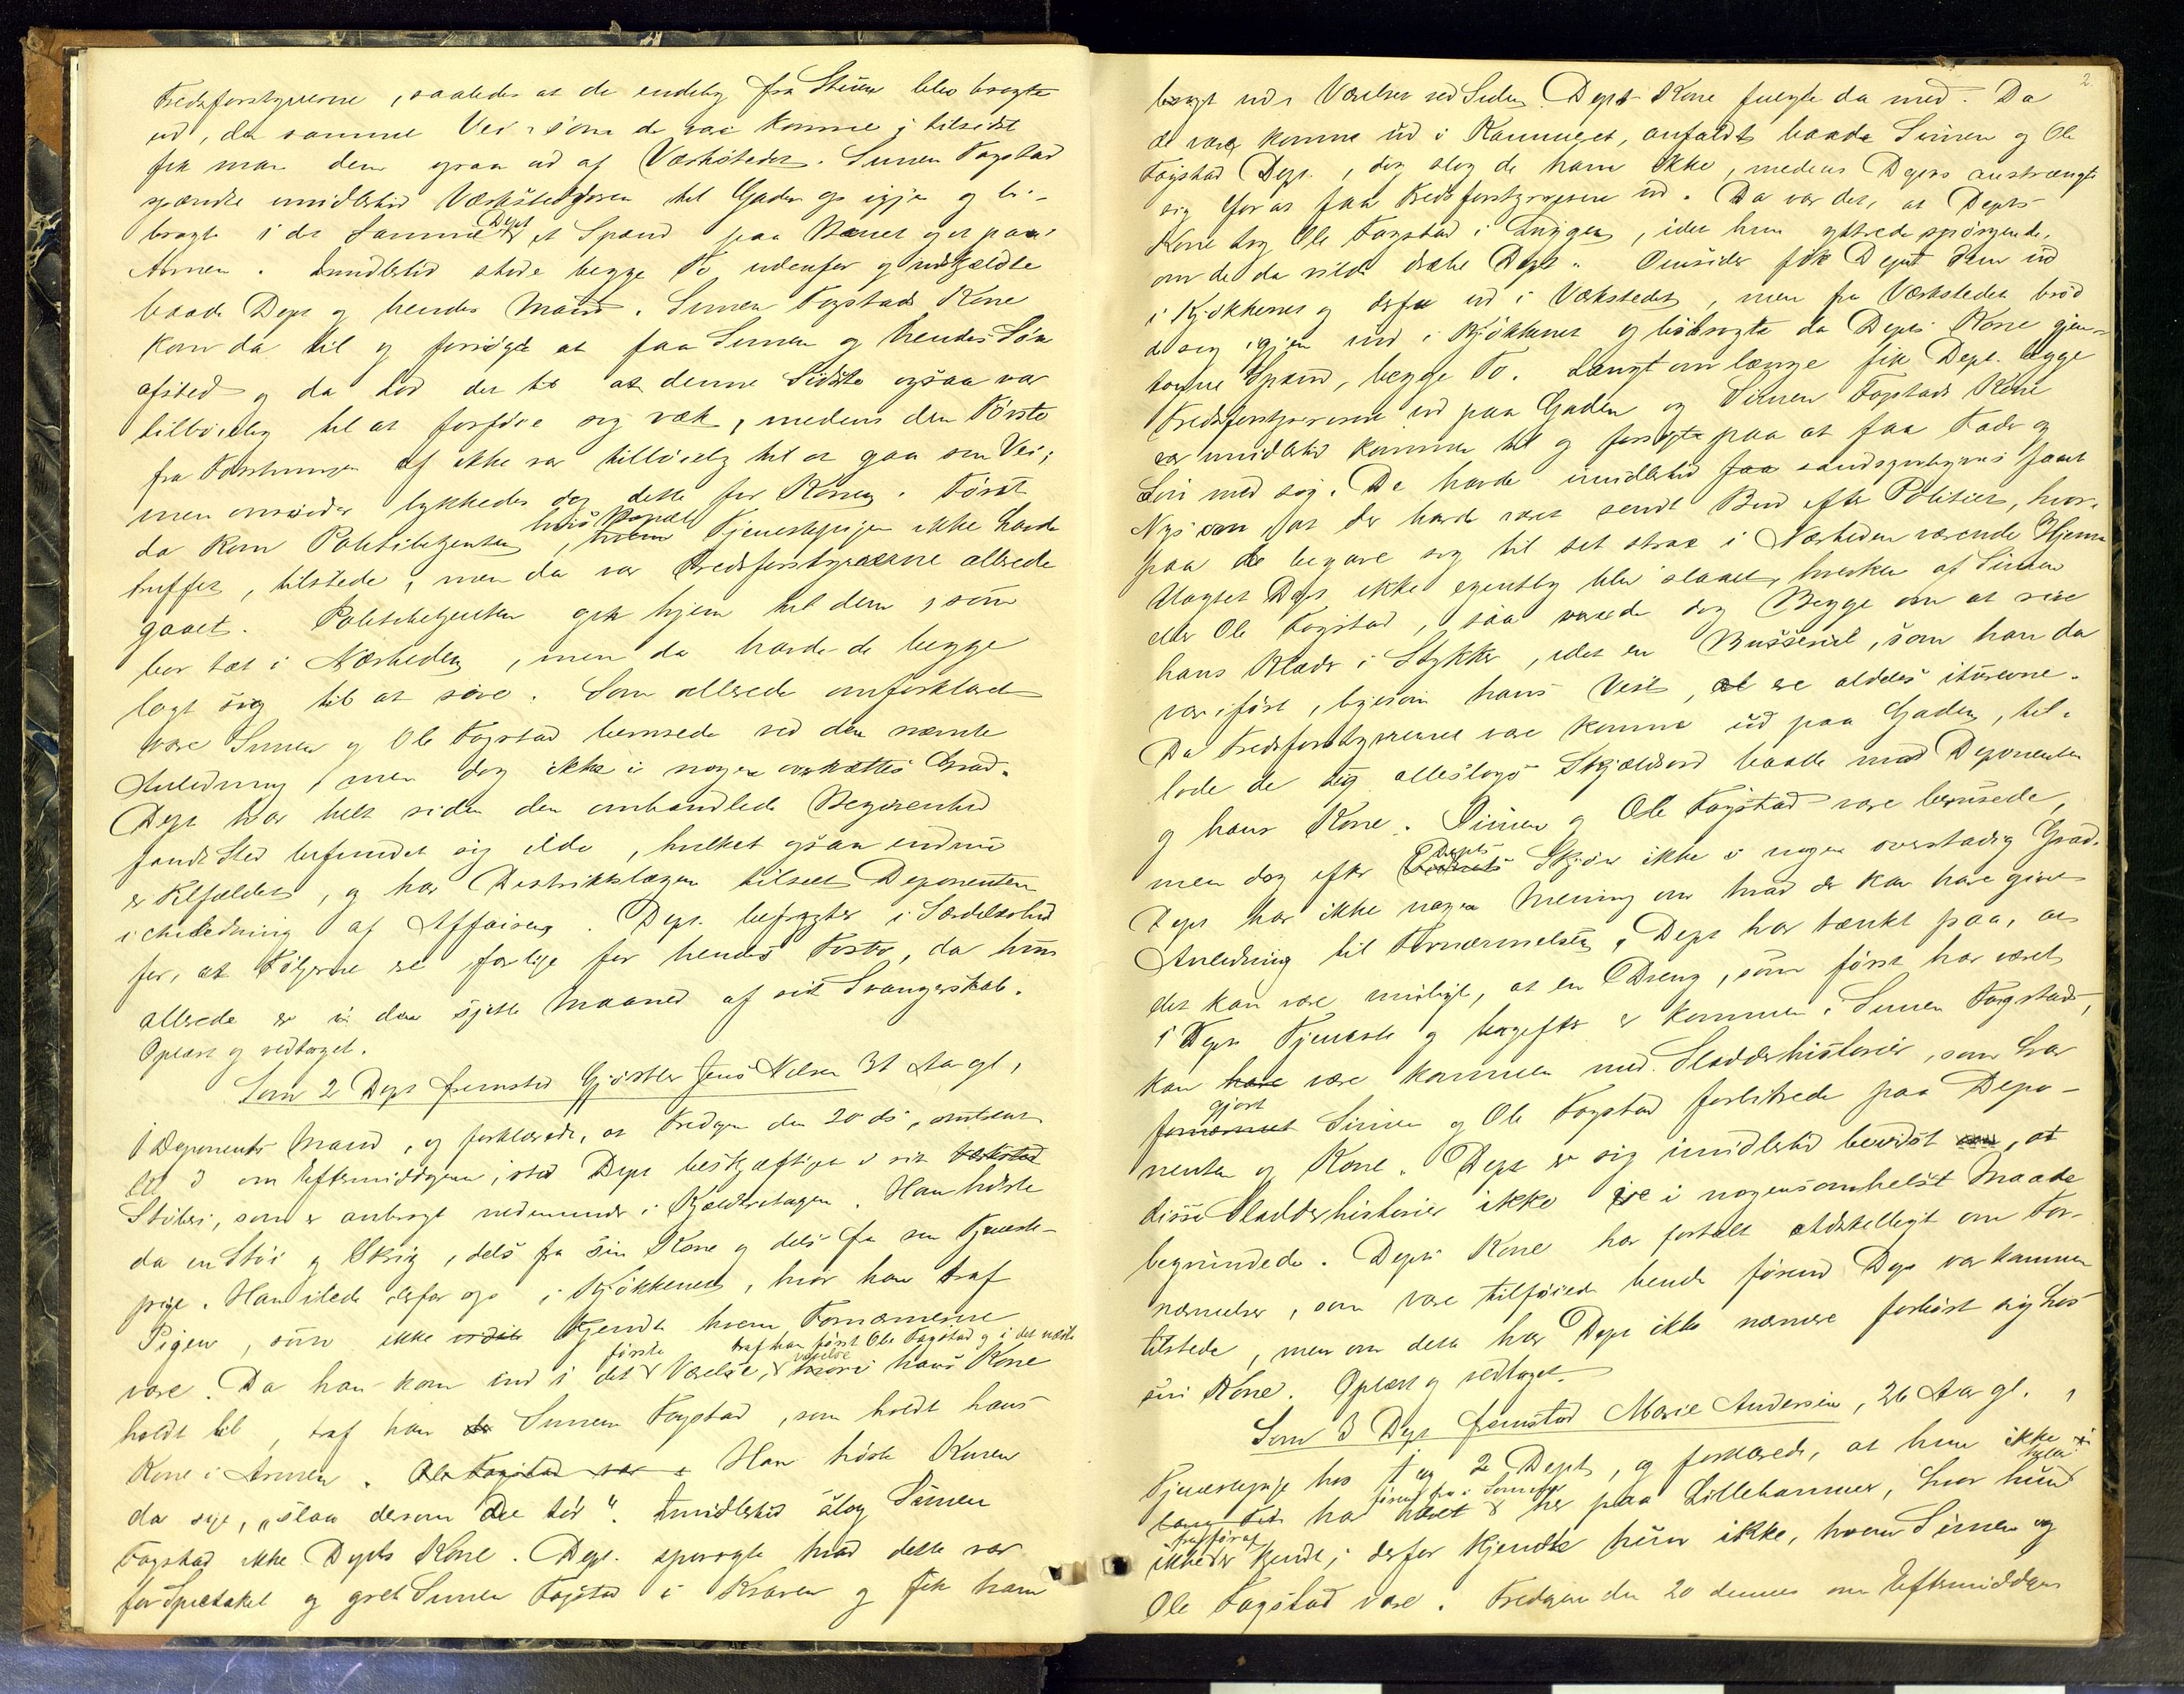 Fredsforstyrrerne, saaledes at de endelig fra Stuen blev bragte
ud, den samme Vei som de var komne; tilsidst
fik man dem ogsaa ud af Værkstedet. Simen Fogstad
spændte imidlertid Værkstedsdøren til Gaden op igjen og bi-
bragte i det samme Dept et Spænd paa Benet og et paa
Armen. Imidlertid stode begge To udenfor og udskjældte
baade Dept og hendes Mand. Simen Fogstads Kone
kom da til og forsøgte at faa Simen og hendes Søn
afsted og da lod det til at denne Sidste ogsaa var
tilbøielig til at forføie sig væk, medens den Første
fra Forstningen af ikke var tilbøielig til at gaa sin Vei;
men omsider lykkedes dog dette for Konen. Først
da kom Politibetjenten, hvis Tjenestepigen ikke havde
truffet, tilstede; men da var Fredsforstyrrerne allerede
gaaet. Politibetjenten gik hjem til dem, som
bor tæt i Nærheden, men da havde de begge
lagt sig til at sove. Som allerede omforklaret
vare Simen og Ole Fogstad berusede ved den nævnte
Anledning, men dog ikke i nogen overhættes Grad.
Dept har helt siden den omhandlede Begivenhed
fandt Sted befundet sig ilde, hvilket ogsaa endnu
er Tilfældet, og har Distriktslægen tilseet Deponenten
i Anledning af Affairen. Dept. befrygter i Særdeleshed
for, at Følgerne ere farlige for hendes Foster, da hun
allerede er i den sjette Maaned af sit Svangerskab.
Oplæst og vedtaget.
Som 2 Dept fremstod Gjørtler Jens Nilsen 31 Aar gl,
1 Deponents Mand, og forklarede, at Fredagen den 20 ds, omtrent
Kl 3 om Eftermiddagen, stod Dept beskjæftiget i sit Værksted
Støberi, som er anbragt nedenunder i Kjælderetagen. Han hørte
da en Støi og Skrig, dels fra sin Kone og dels fra sin Tjeneste-
pige. Han ilede derfor op i Kjøkkenet, hvor han traf
Pigen, som ikke vidste kjendte hvem Fornærmerne
vare. Da han kom ind i det første Værelse, traf han først Ole Fogstad og i det næste værelse hvori hans Kone
holdt til, traf han da Simen Fogstad, som holdt hans
Kone i Armen. Ole Fogstad var i Han hørte Konen
da sige, "slaa dersom De tør". Imidlertid slog Simen
Fogstad ikke Depts Kone. Dept. spurgte hvad dette var
for Spetakel og greb Simen Fogstad i Kraven og fik ham
2
bragt ud i Værelset ved Siden. Depts Kone fulgte da med. Da
de vare komne ud i Kammeret, anfaldt baade Simen og Ole
Fogstad Dept., dog slog de ham ikke, medens Depts anstrængte
sig for at faa Fredsforstyrrerne ud. Da var det, at Depts
Kone tog Ole Fogstad i Ryggen, idet hun yttrede spørgende,
om de da vilde dræbe Dept. Omsider fik Dept dem ud
i Kjøkkenet og derfra ud i Værkstedet, men fra Værkstedet brød
de sig igjen ind i Kjøkkenet og bibragte da Depts Kone gjen-
tagne Spænd, begge To. Langt om længe fik Dept. begge
Fredsforstyrrerne ud paa Gaden og Simen Fogstads Kone
var imidlertid kommen til og forsøgte paa at faa Fader og
Søn med sig. De havde imidlertid faa sandsynligvis faaet
Nys om, at der havde været sendt Bud efter Politiet, hvor-
paa de begave sig til sit strax i Nærheden værende Hjem.
Uagtet Dept ikke egentlig blev slaaet, hverken af Simen
eller Ole Fogstad, saa vare de dog Begge om at rive
hans Klæder i Stykker, idet en Busserul, som han da
var iført, ligesom hans Vest, ere aldeles iturevne.
Da Fredsforstyrrerne vare komne ud paa Gaden, til-
lode de sig alleslags Skjældsord baade mod Deponenten
og hans Kone. Simen og Ole Fogstad vare berusede,
men dog efter Depts Skjøn ikke i nogen overstadig Grad.
Dept har ikke nogen Mening om hvad der kan have givet
Anledning til Fornærmelsen. Dept har tænkt paa, at
det kan være muligt, at en Dreng, som først har været
i Depts Tjeneste og bagefter er kommen i Simen Fogstads,
kan have være kommen med Sladderhistorier, som har
fornærmet gjort Simen og Ole Fogstad forbitrede paa Depo-
nenten og Kone. Dept er sig imidlertid bevidst om, at
disse Sladderhistorier ikke ere i nogensomhelst Maade
begrundede. Depts Kone har fortalt Adskelligt om For-
nærmelser, som vare tilføiede hende førend Dept var kommen
tilstede, men om dette har Dept ikke nærmere forhørt sig hos
sin Kone. Oplæst og vedtaget.
Som 3 Dept fremstod Marie Andersen, 26 Aar gl.,
Tjenestepige hos 1 og 2 Dept, og forklarede, at hun ikke
lang Tid har været her paa Lillehammer, hvor hun
ikke er kjendt; derfor kjendte hun ikke, hvem Simen og
Ole Fogstad vare. Fredagen den 20 dennes om Eftermiddagen